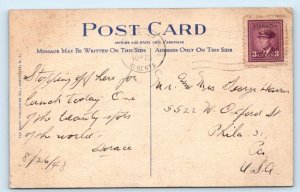 POST CARD
MESSAGE MAY BE WRITTEN ON THIS SIDE
ADDRESS ONLY ON THIS SIDE
Stopping off here for
lunch today. One
of the beauty spots
of the world.
Horace
8/26/48
Mr. & Mrs. George Harris
5522 W. Oxford St
Phila 31
Pa
U.S.A
3 CENTS 3